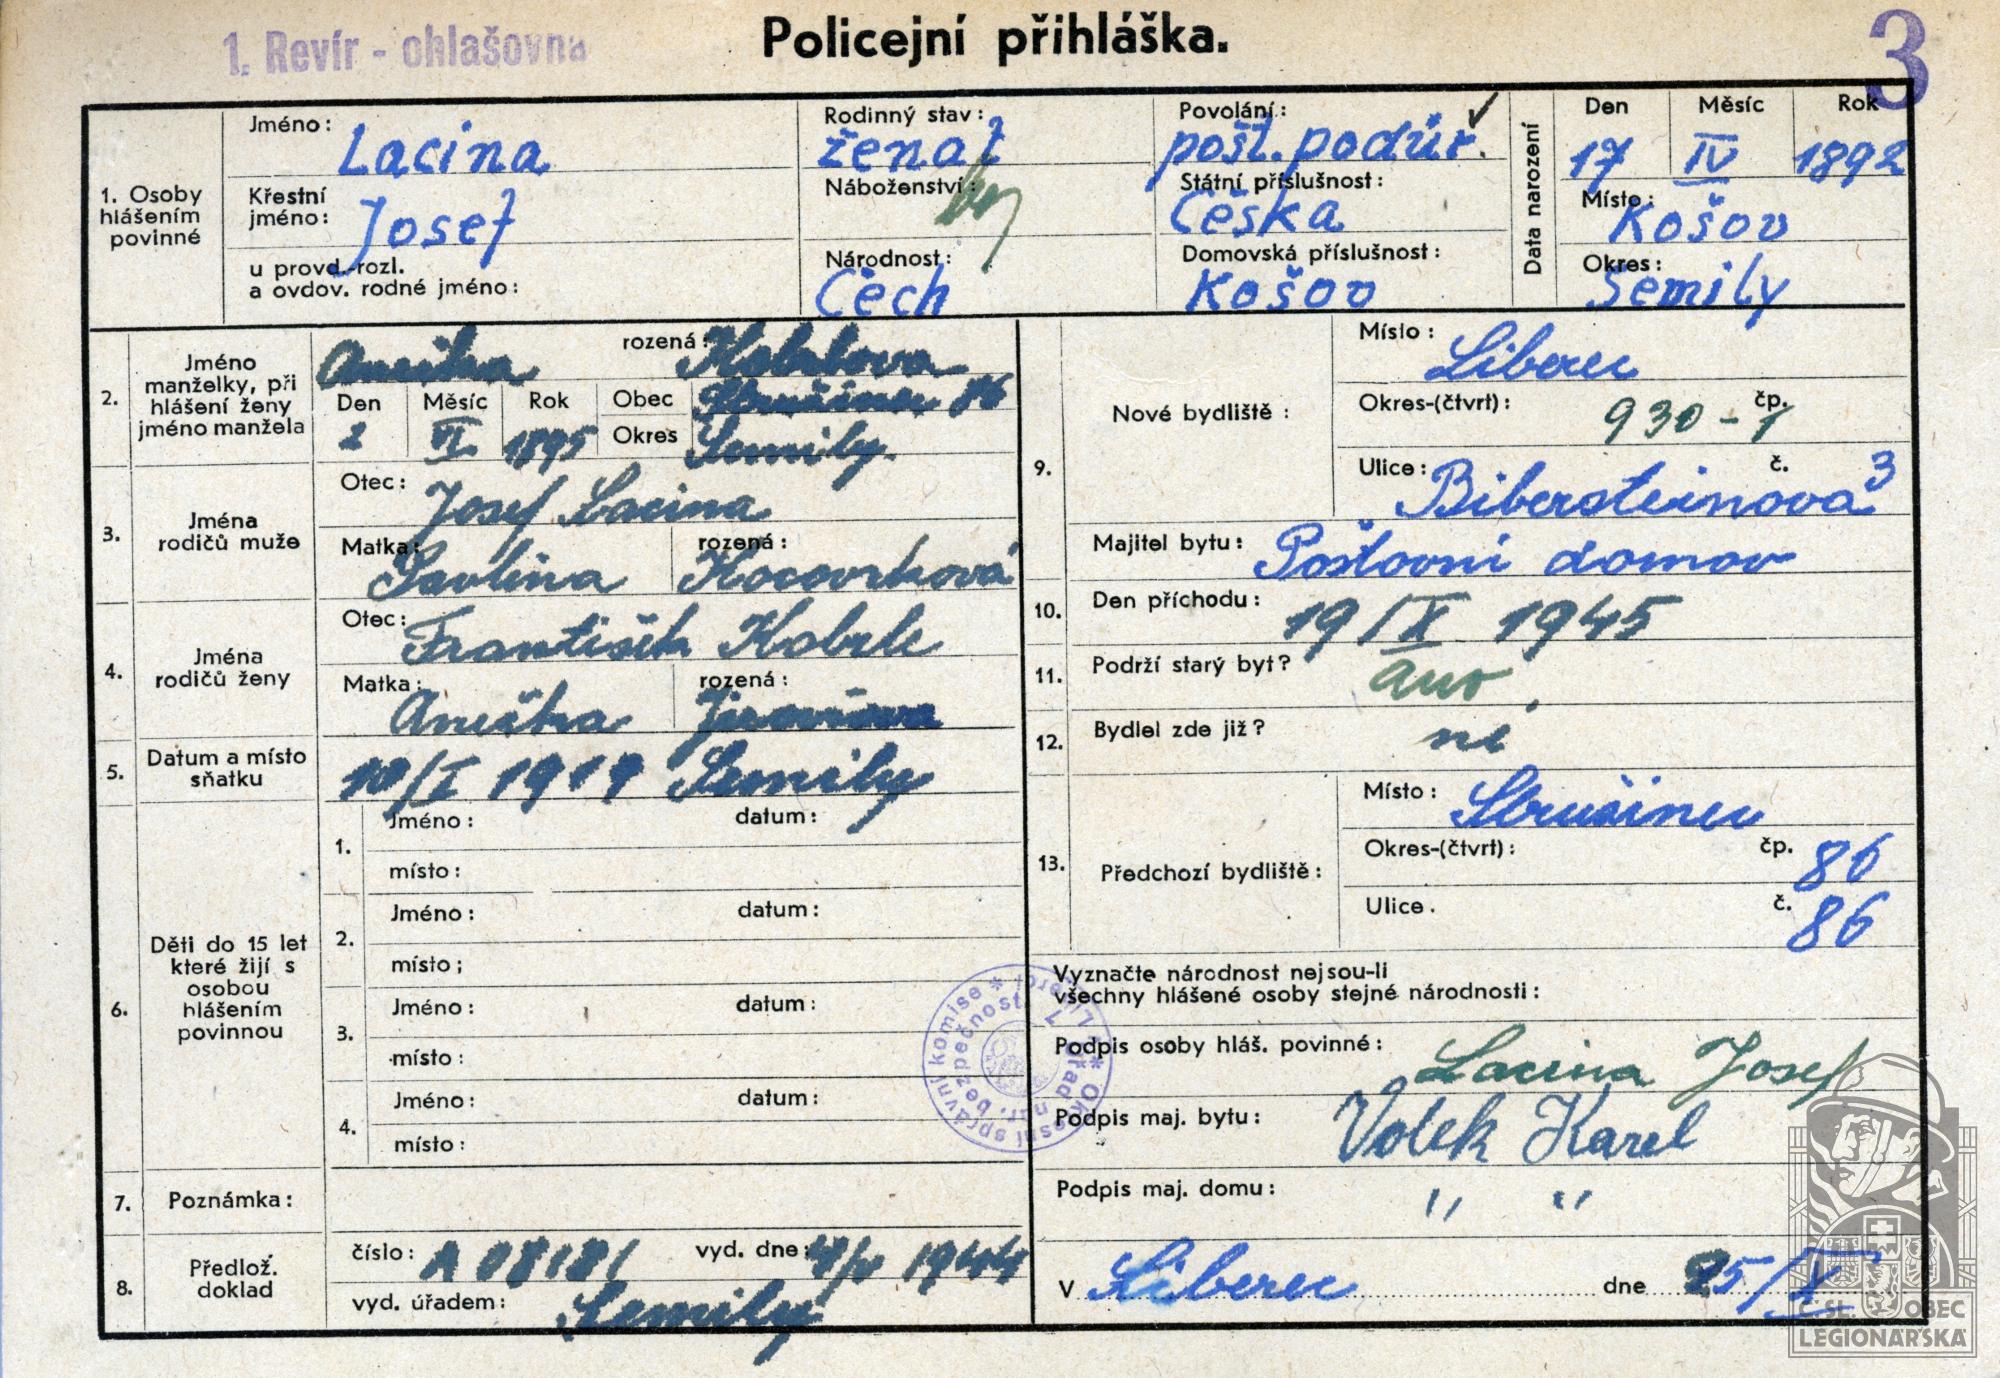 1. Revír - ohlašovna
Policejní přihláška.
3
1. Osoby hlášením povinné
Jméno: Lacina
Křestní jméno: Josef
u provd.-rozl. a ovdov. rodné jméno:
Rodinný stav: ženat
Náboženství: bez
Národnost: Čech
Povolání: pošt. podúř.
Státní příslušnost: Česká
Domovská příslušnost: Košov
Data narození
Den Měsíc Rok
17 IV 1892
Místo: Košov
Okres: Semily
2. Jméno manželky, při hlášení ženy jméno manžela
Anežka rozená: Kobrlova
Den Měsíc Rok Obec 86
2 VI. 1895 Okres Semily
3. Jména rodičů muže
Otec: Josef Lacina
Matka: Pavlína rozená: Kocourková
4. Jména rodičů ženy
Otec: František Kobrle
Matka: Anežka rozená:
5. Datum a místo sňatku
10/I Semily
6. Děti do 15 let které žijí s osobou hlášením povinnou
1. Jméno: datum:
místo:
2. Jméno: datum:
místo;
3. Jméno: datum:
místo:
4. Jméno: datum:
místo:
7. Poznámka:
8. Předlož. doklad
číslo: A 08181 vyd. dne: 1944
vyd. úřadem: Semily
9. Nové bydliště:
Místo: Liberec
Okres-(čtvrt): čp. 930-1
Ulice: Bibersteinova č. 3
Majitel bytu: Poštovní domov
10. Den příchodu: 19/X 1945
11. Podrží starý byt? ano
12. Bydlel zde již? ne
13. Předchozí bydliště:
Místo:
Okres-(čtvrt): čp. 86
Ulice. č. 86
Vyznačte národnost nejsou-li
všechny hlášené osoby stejné národnosti:
Podpis osoby hláš. povinné: Lacina Josef
Podpis maj. bytu: Volek Karel
Podpis maj. domu: " "
V Liberec dne 25/X
* Okresní správní komise * Liberec
Úřad nár. bezpečnosti
Č. SL. OBEC
LEGIONÁŘSKÁ